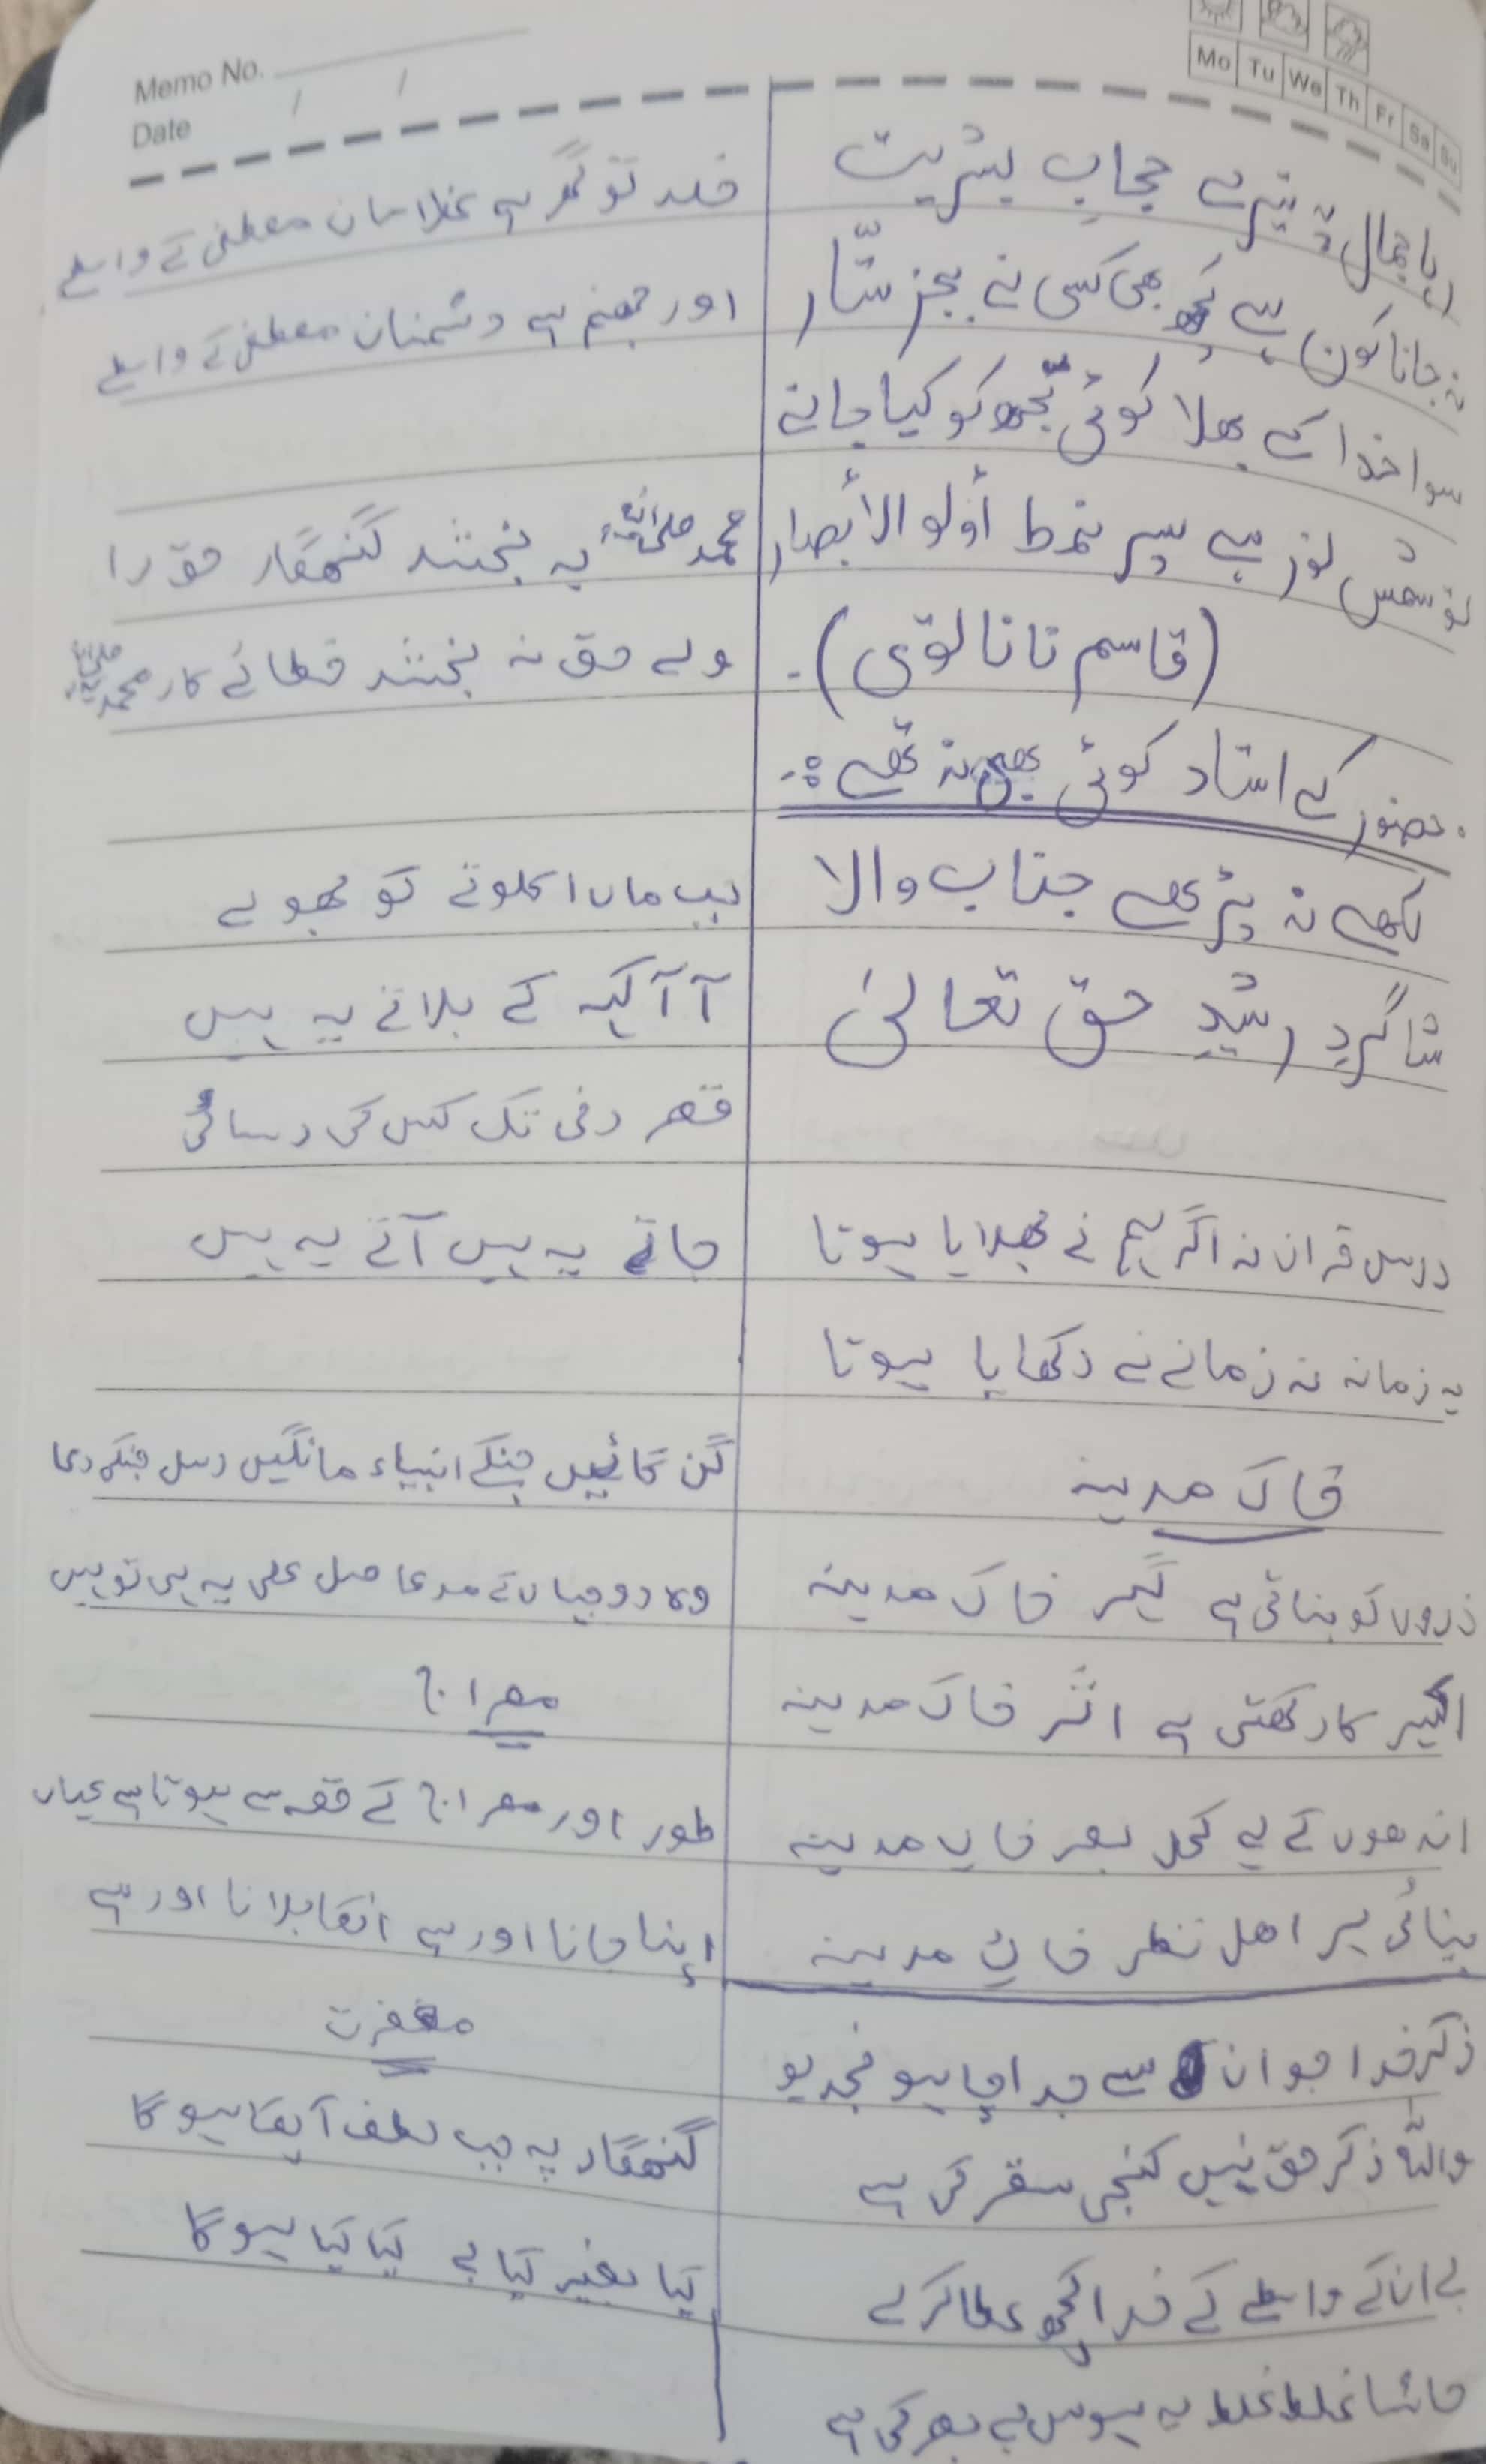 Memo No.
Date / /
Mo Tu We Th Fr Sa Su
رہا جمال پہ تیرے حجاب بشریت
نہ جانا کون ہے کچھ بھی کسی نے بجز ستّار
سوا خدا کے بھلا کوئی تجھ کو کیا جانے
تو شمس نور ہے سپر نمط أولو الأبصار
(قاسم نانالوتوی)۔
۔ حضور کے استاد کوئی بھی نہ تھے :۔
لکھے نہ پڑھے جناب والا
شاگردِ رشیدِ حق تعالیٰ
درس قرآن نہ اگر ہم نے بھلایا ہوتا
یہ زمانہ نہ زمانے نے دکھایا ہوتا
خاک مدینہ
ذروں کو بناتی ہے گہر خاک مدینہ
اکسیر کا رکھتی ہے اثر خاک مدینہ
اندھوں کے لیے کحل بصر خاک مدینہ
بینائی ہر اھل نظر خاکِ مدینہ
ذکر خدا جو ان سے جدا چاہیو نجدیو
واللّٰہ ذکر حق نہیں کنجی سقر کی ہے
بے ان کے واسطے کے خدا کچھ عطا کرے
حاشا غلط غلط یہ ہوس بے بصر کی ہے
خلد تو گھر ہے غلامان مصطفی کے واسطے
اور جھنم ہے دشمنان مصطفی کے واسطے
محمد صلی اللہ علیہ وسلم بہ بخشد گنھگار حق را
ولے حق نہ بخشد خطائے کار محمد صلی اللہ علیہ وسلم
جب ماں اکلوتے کو بھولے
آ آ کہہ کے بلاتے یہ ہیں
قصر دنی تک کس کی رسائی
جاتے یہ ہیں آتے یہ ہیں
گن گائیں جنکے انبیاء مانگیں رسل جنکی دعا
وہ دو جہاں کے مدعا صل علی یہ ہی تو ہیں
معراج
طور اور معراج کے قصہ سے ہوتا ہے عیاں
اپنا جانا اور ہے انکا بلانا اور ہے
مغفرت
گنھگار پہ جب لطف آپکا ہوگا
کیا بغیر کیا بے کیا کیا ہوگا